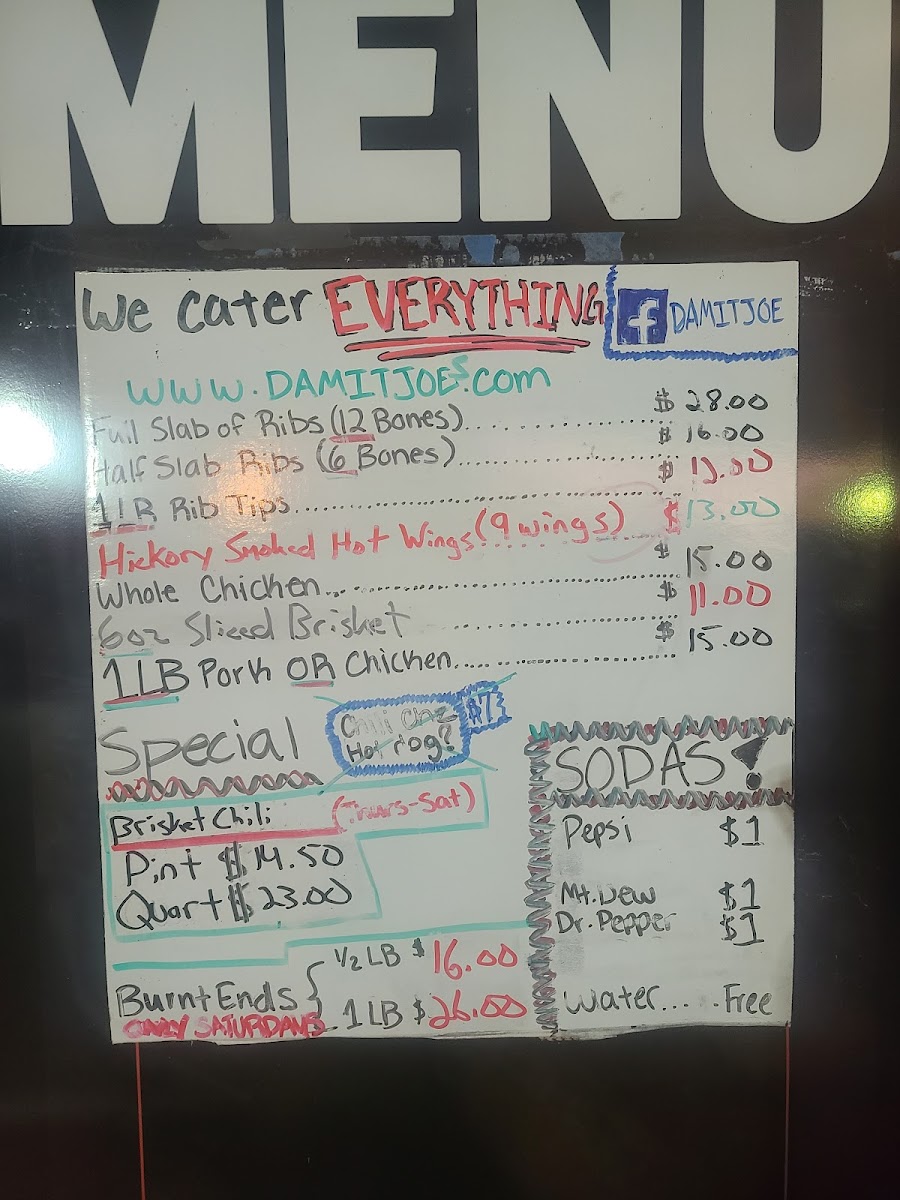 MENU
We Cater EVERYTHING
f DAMITJOE
WWW.DAMITJOES.com
Full Slab of Ribs (12 Bones)........................ $ 28.00
Half Slab Ribs (6 Bones)........................ $ 16.00
1 LB Rib Tips........................ $
Hickory Smoked Hot Wings (9 wings) $ 13.00
Whole Chicken........................ $ 15.00
6oz Sliced Brisket........................ $ 11.00
1 LB Pork OR Chicken........................ $ 15.00
Special
Chili Chz $7
Hot dog?
Brisket Chili (Thurs-Sat)
Pint $14.50
Quart $ 23.00
Burnt Ends
ONLY SATURDAYS
1/2 LB $ 16.00
1 LB $ 26.00
SODAS!
Pepsi $1
Mt. Dew $1
Dr. Pepper $1
Water..... Free